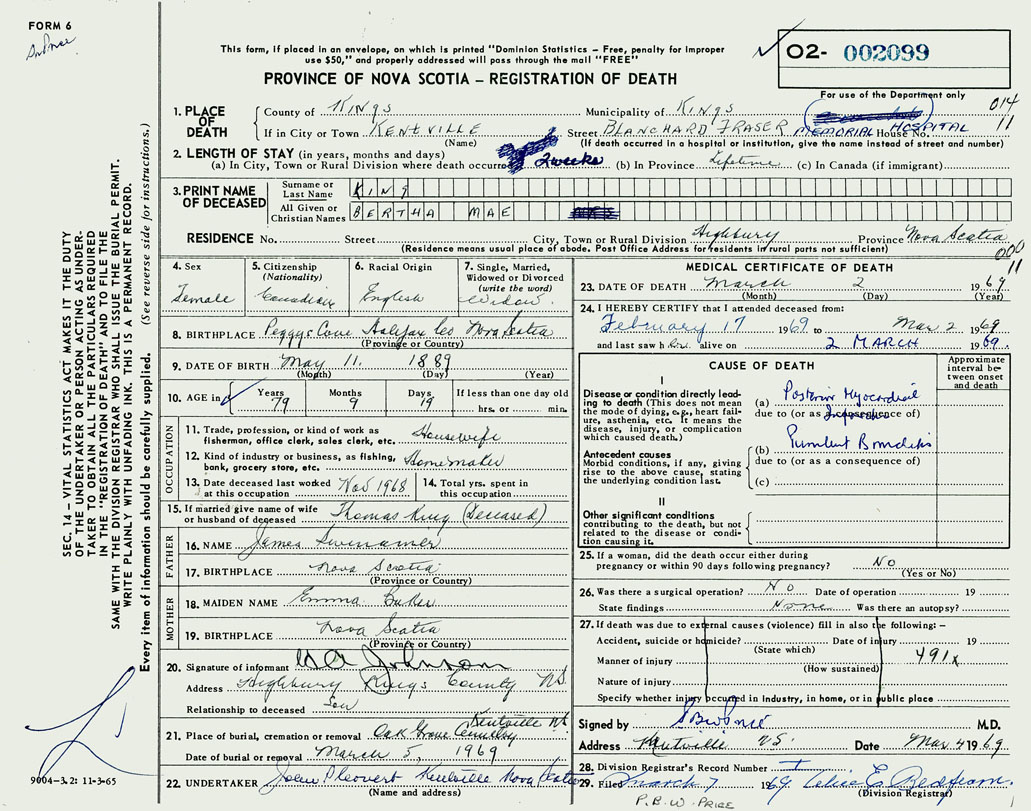 FORM 6
This form, if placed in an envelope, on which is printed "Dominion Statistics – Free, penalty for improper
use $50," and properly addressed will pass through the mail "FREE"
O2- 002099
PROVINCE OF NOVA SCOTIA – REGISTRATION OF DEATH
For use of the Department only
014
11
1. PLACE OF DEATH
County of Kings Municipality of Kings
If in City or Town KENTVILLE Street BLANCHARD FRASER MEMORIAL House No. HOSPITAL
(Name) (If death occurred in a hospital or institution, give the name instead of street and number)
2. LENGTH OF STAY (in years, months and days)
(a) In City, Town or Rural Division where death occurred 2 weeks (b) In Province Lifetime (c) In Canada (if immigrant)
3. PRINT NAME OF DECEASED
Surname or Last Name King
All Given or Christian Names BERTHA MAE
RESIDENCE No. Street City, Town or Rural Division Highbury Province Nova Scotia
(Residence means usual place of abode. Post Office Address for residents in rural parts not sufficient)
000
11
4. Sex
Female
5. Citizenship
(Nationality)
Canadian
6. Racial Origin
English
7. Single, Married,
Widowed or Divorced
(write the word)
Widow
8. BIRTHPLACE Peggys Cove Halifax Co Nova Scotia
(Province or Country)
9. DATE OF BIRTH May 11. 1889
(Month) (Day) (Year)
10. AGE in Years 79 Months 9 Days 19 If less than one day old
hrs. or min.
OCCUPATION
11. Trade, profession, or kind of work as
fisherman, office clerk, sales clerk, etc. Housewife
12. Kind of industry or business, as fishing,
bank, grocery store, etc. Homemaker
13. Date deceased last worked
at this occupation Nov 1968
14. Total yrs. spent in
this occupation
15. If married give name of wife
or husband of deceased Thomas King (Deceased)
FATHER
16. NAME James Swinamer
17. BIRTHPLACE Nova Scotia
(Province or Country)
MOTHER
18. MAIDEN NAME Emma Baker
19. BIRTHPLACE Nova Scotia
(Province or Country)
20. Signature of informant Johnson
Address Highbury Kings County NS
Relationship to deceased Son
21. Place of burial, cremation or removal Oak Grove Cemetery Kentville NS
Date of burial or removal March 5, 1969
22. UNDERTAKER Kentville Nova Scotia
(Name and address)
MEDICAL CERTIFICATE OF DEATH
23. DATE OF DEATH March 2 1969
(Month) (Day) (Year)
24. I HEREBY CERTIFY that I attended deceased from:
February 17 1969 to Mar 2 1969
and last saw her alive on 2 MARCH 1969.
CAUSE OF DEATH
Approximate
interval be-
tween onset
and death
I
Disease or condition directly lead-
ing to death (This does not mean
the mode of dying, e.g., heart fail-
ure, asthenia, etc. It means the
disease, injury, or complication
which caused death.)
(a) Posterior Myocardial
due to (or as a consequence of)
Antecedent causes
Morbid conditions, if any, giving
rise to the above cause, stating
the underlying condition last.
(b) Purulent Bronchitis
due to (or as a consequence of)
(c)
II
Other significant conditions
contributing to the death, but not
related to the disease or condi-
tion causing it.
25. If a woman, did the death occur either during
pregnancy or within 90 days following pregnancy? No
(Yes or No)
26. Was there a surgical operation? No Date of operation 19
State findings None Was there an autopsy?
27. If death was due to external causes (violence) fill in also the following: –
Accident, suicide or homicide? Date of injury 19
(State which)
Manner of injury 491x
(How sustained)
Nature of injury
Specify whether injury occurred in industry, in home, or in public place
Signed by M.D.
Address Kentville NS. Date Mar. 4 1969
28. Division Registrar's Record Number
29. Filed March 7 1969
(Division Registrar)
P.B.W. PRICE
SEC. 14 – VITAL STATISTICS ACT MAKES IT THE DUTY
OF THE UNDERTAKER OR PERSON ACTING AS UNDER-
TAKER TO OBTAIN ALL THE PARTICULARS REQUIRED
IN THE "REGISTRATION OF DEATH" AND TO FILE THE
SAME WITH THE DIVISION REGISTRAR WHO SHALL ISSUE THE BURIAL PERMIT.
WRITE PLAINLY WITH UNFADING INK. THIS IS A PERMANENT RECORD.
Every item of information should be carefully supplied. (See reverse side for instructions.)
9004-3.2: 11-3-65